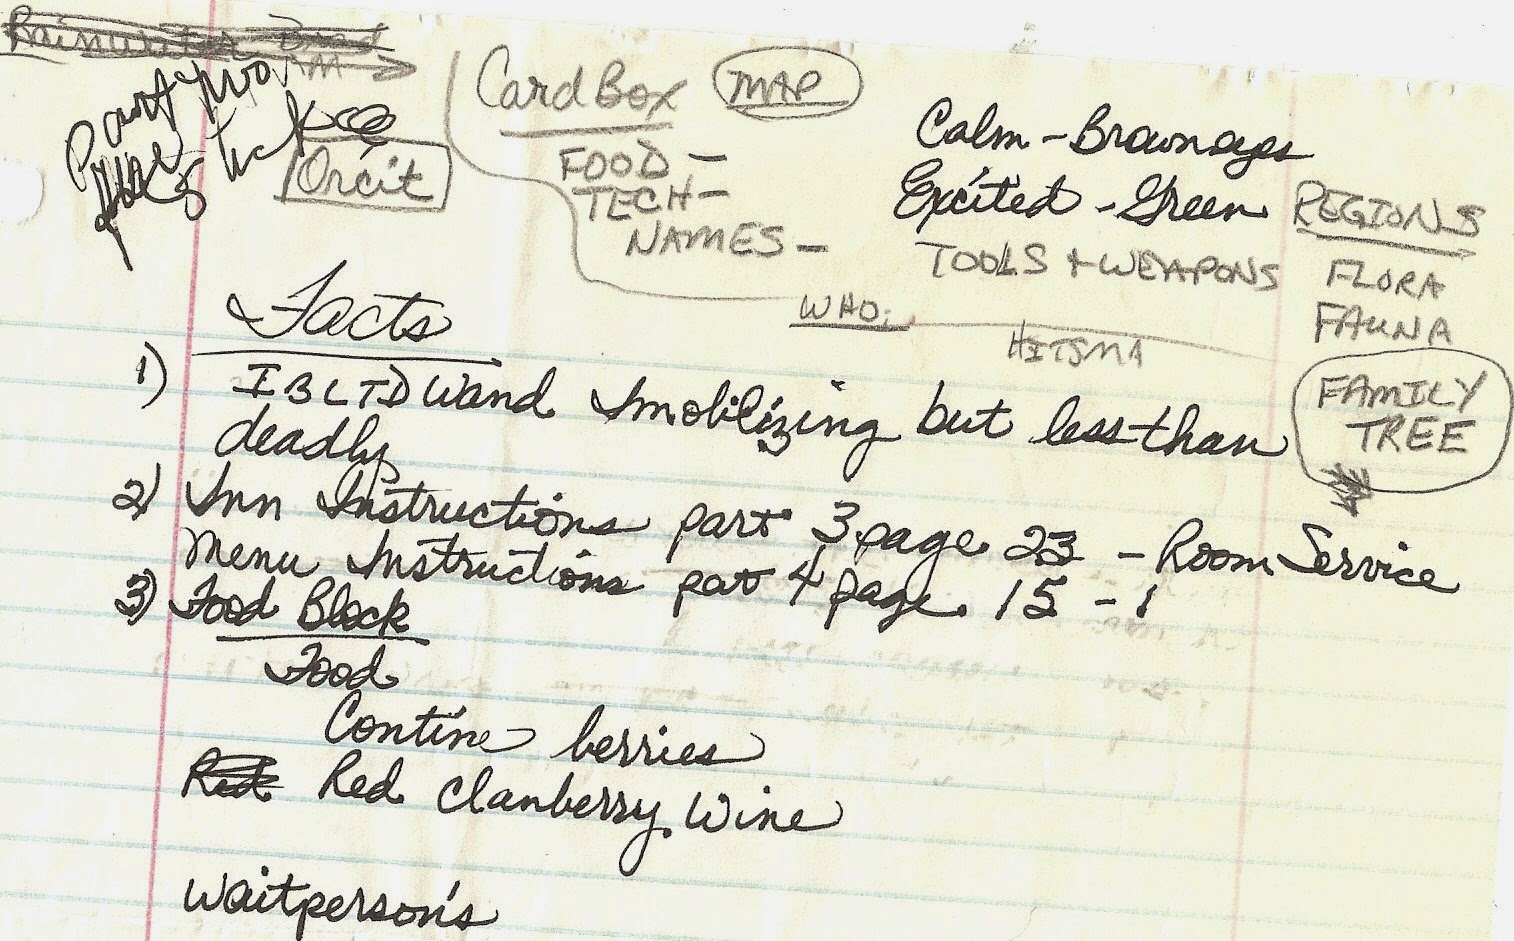 Part two
Orcit
Card Box MAP
FOOD -
TECH -
NAMES -
Calm - Brown eyes
Excited - Green
TOOLS + WEAPONS
WHO:
HITSMA
REGIONS
FLORA
FAUNA
FAMILY
TREE
Facts
1) IBLTD Wand Imobilizing but less than
deadly
2) Inn Instructions part 3 page 23 - Room Service
Menu Instructions part 4 page 15 - 1
3) Food Block
Food
Contine berries
Red Red Clanberry Wine
Waitperson's